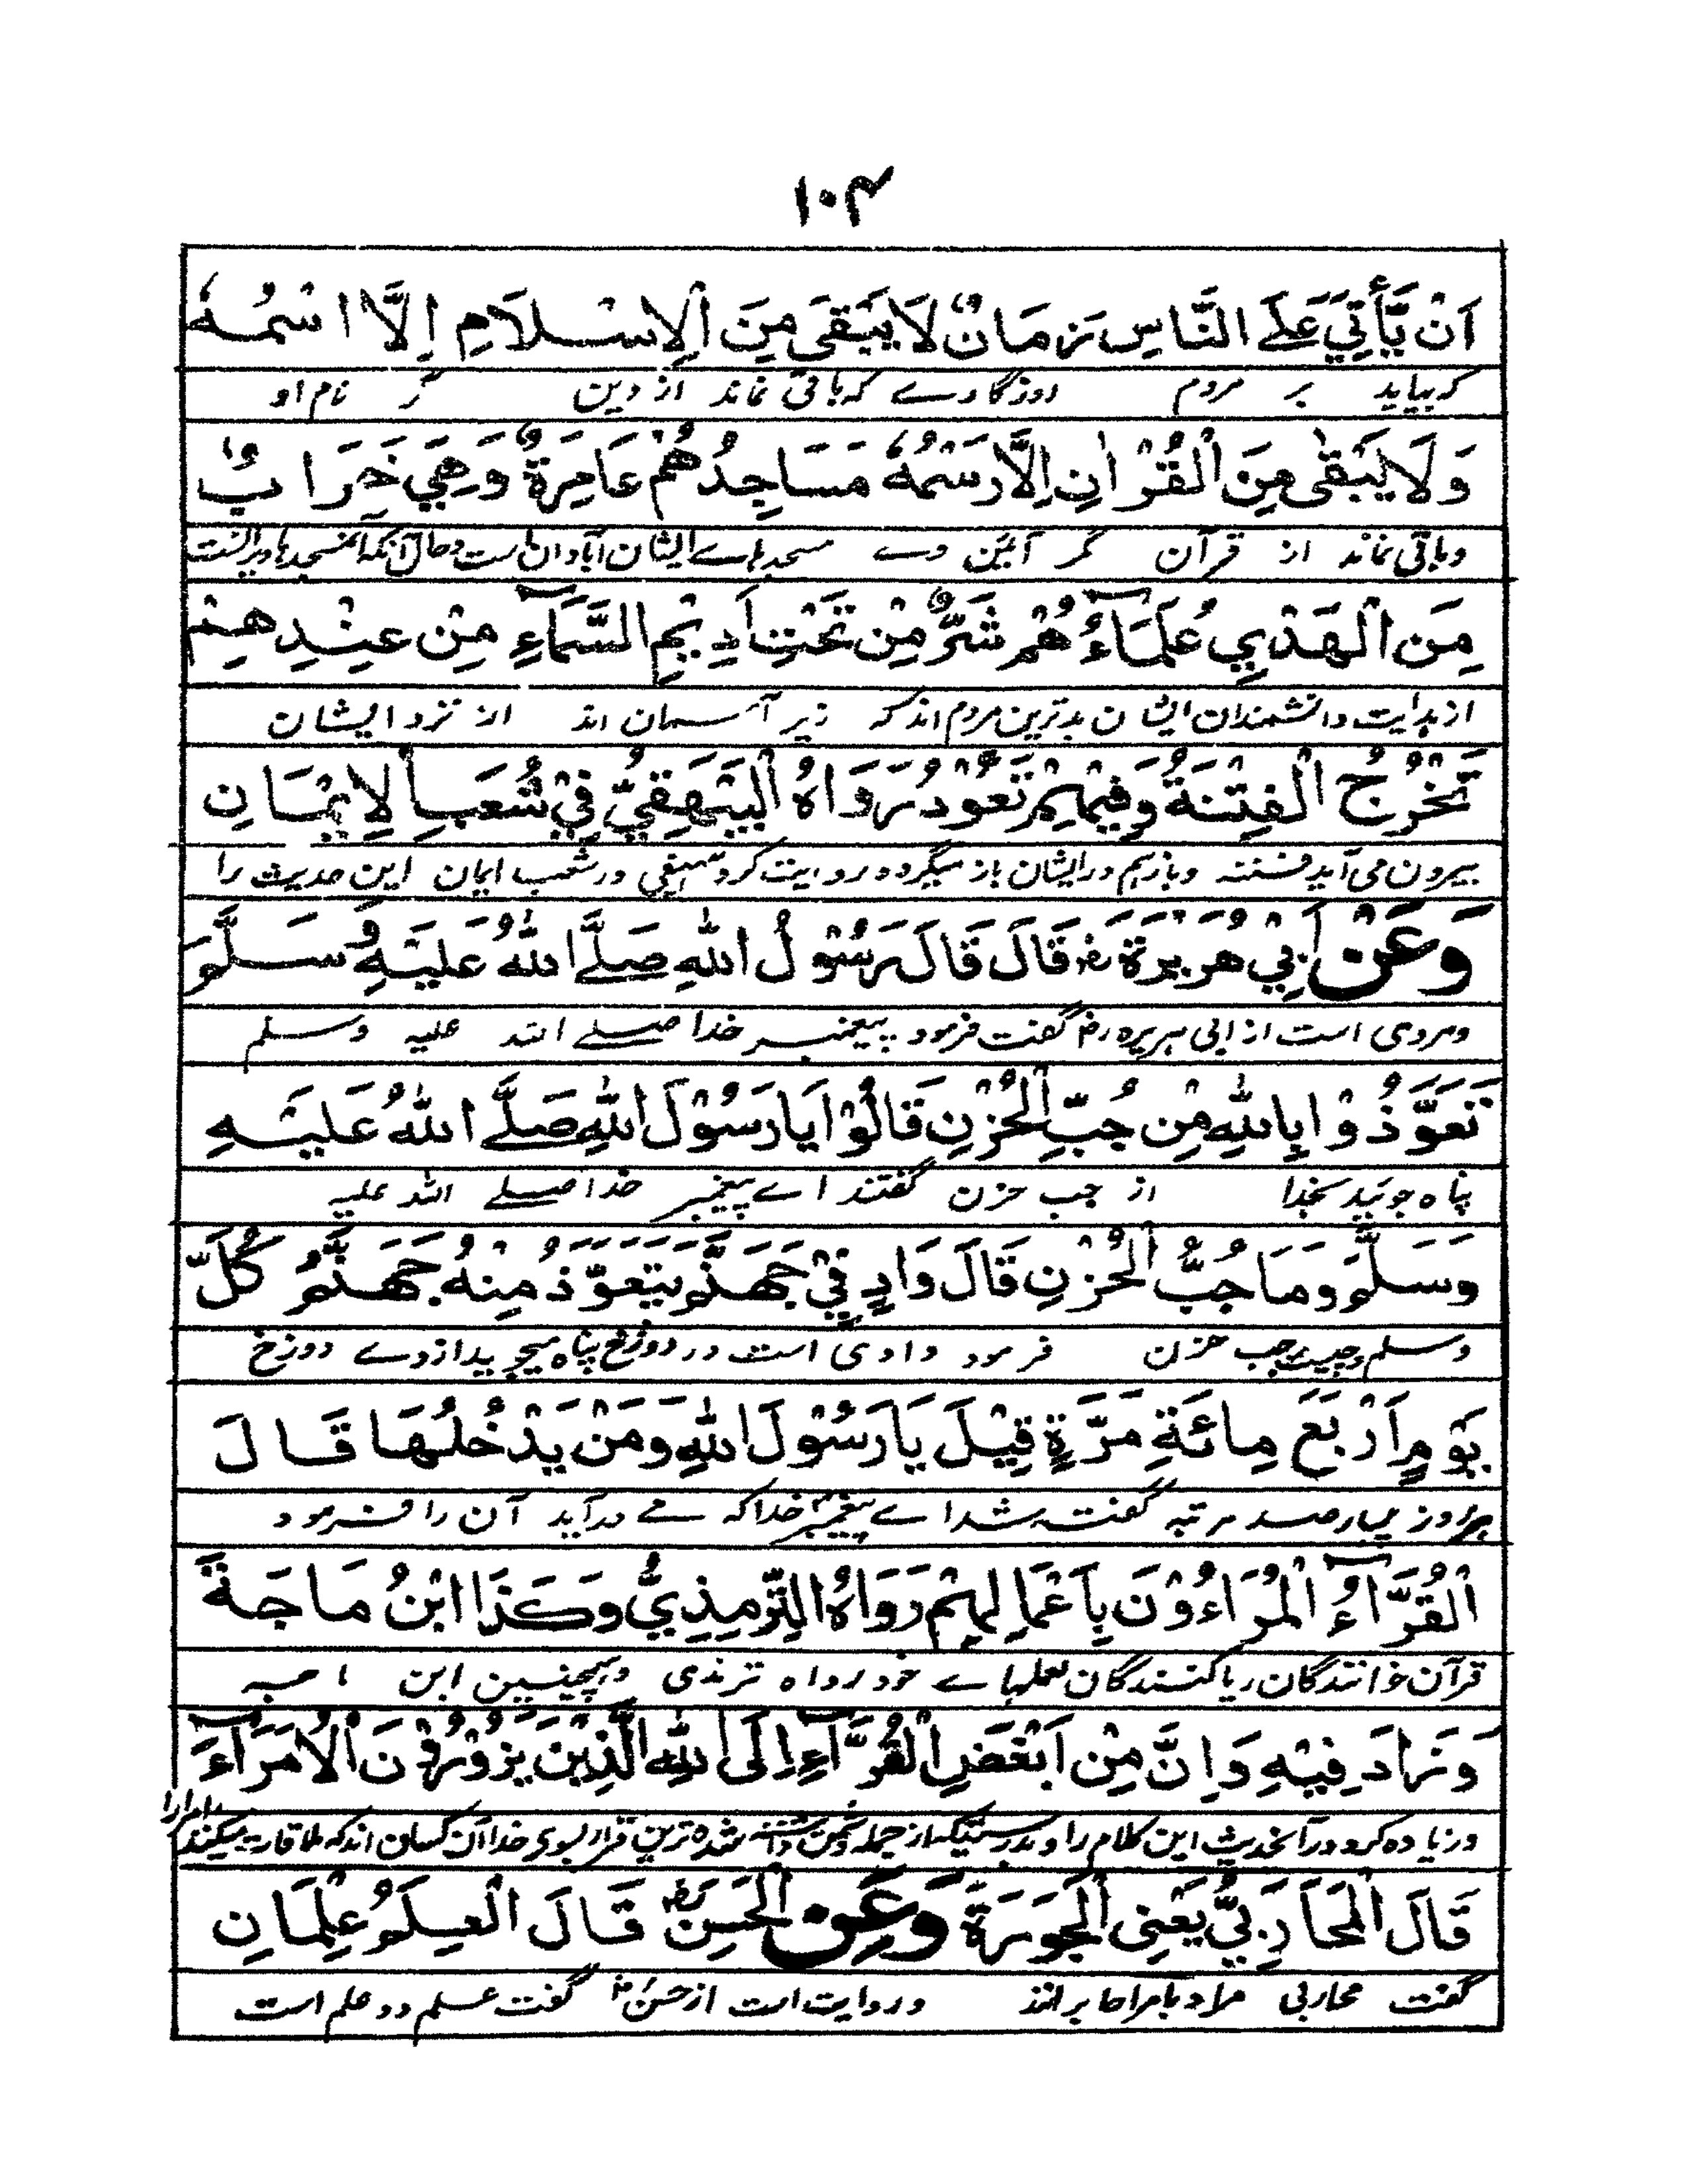 ۱۰۴
اَنْ يَّأْتِيَ عَلَے النَّاسِ زَمَانٌ لَا يَبْقٰى مِنَ الْاِسْلَامِ اِلَّا اسْمُهٗ
که بیاید بر مردم روزگارے که باقی نماند از دین مگر نام او
وَلَا يَبْقٰى مِنَ الْقُرْاٰنِ اِلَّا رَسْمُهٗ مَسَاجِدُهُمْ عَامِرَةٌ وَهِيَ خَرَابٌ
وباقی نماند از قرآن مگر آئین وے مسجدہاے ایشان آبادان است وحال آنکه آنمسجدہا ویرانست
مِنَ الْهَدْيِ عُلَمَآءُ هُمْ شَرٌّ مِنْ تَحْتِ اَدِيْمِ السَّمَآءِ مِنْ عِنْدِهِمْ
از ہدایت دانشمندان ایشان بدترین مردم اند که زیر آسمان اند از نزد ایشان
تَخْرُجُ الْفِتْنَةُ وَفِيْهِمْ تَعُوْدُ رَوَاهُ الْبَيْهَقِيُّ فِيْ شُعَبِ الْاِيْمَانِ
بیرون می آید فتنه وبازہم در ایشان باز میگردد روایت کرد بیہقی در شعب ایمان این حدیث را
وَعَنْ اَبِيْ هُرَيْرَةَ رض قَالَ قَالَ رَسُوْلُ اللهِ صَلَّے اللهُ عَلَيْهِ وَسَلَّمَ
ومروی است از ابی ہریرہ رض گفت فرمود پیغمبر خدا صلے اللہ علیه وسلم
تَعَوَّذُوْا بِاللهِ مِنْ جُبِّ الْحُزْنِ قَالُوْا يَا رَسُوْلَ اللهِ صَلَّے اللهُ عَلَيْهِ
پناہ جوئید بخدا از جب حزن گفتند اے پیغمبر خدا صلے اللہ علیه
وَسَلَّمَ وَمَا جُبُّ الْحُزْنِ قَالَ وَادٍ فِيْ جَهَنَّمَ يَتَعَوَّذُ مِنْهُ جَهَنَّمُ كُلَّ
وسلم وچیست جب حزن فرمود وادی است در دوزخ پناہ میجوید ازوے دوزخ
يَوْمٍ اَرْبَعَ مِائَةِ مَرَّةٍ قِيْلَ يَا رَسُوْلَ اللهِ وَمَنْ يَدْخُلُهَا قَالَ
ہرروز چہارصد مرتبه گفته شد اے پیغمبر خدا که مے درآید آن را فرمود
الْقُرَّآءُ الْمُرَاءُوْنَ بِاَعْمَالِهِمْ رَوَاهُ التِّرْمِذِيُّ وَكَذَا ابْنُ مَاجَةَ
قرآن خوانندگان ریاکنندگان بعملہاے خود رواہ ترمذی وہمچنین ابن ماجه
وَزَادَ فِيْهِ وَاِنَّ مِنْ اَبْغَضِ الْقُرَّآءِ اِلَى اللهِ الَّذِيْنَ يَزُوْرُوْنَ الْاُمَرَآءَ
وزیادہ کرد درآنحدیث این کلام را وبدرستیکه از جمله دشمن داشته شدہ ترین قرا بسوی خدا آن کسان اند که ملاقات میکنند امرا را
قَالَ الْمُحَارِبِيُّ يَعْنِى الْجَوَرَةَ وَعَنِ الْحَسَنِ رض قَالَ الْعِلْمُ عِلْمَانِ
گفت محاربی مراد بامرا جابرانند وروایت است از حسن رض گفت علم دو علم است